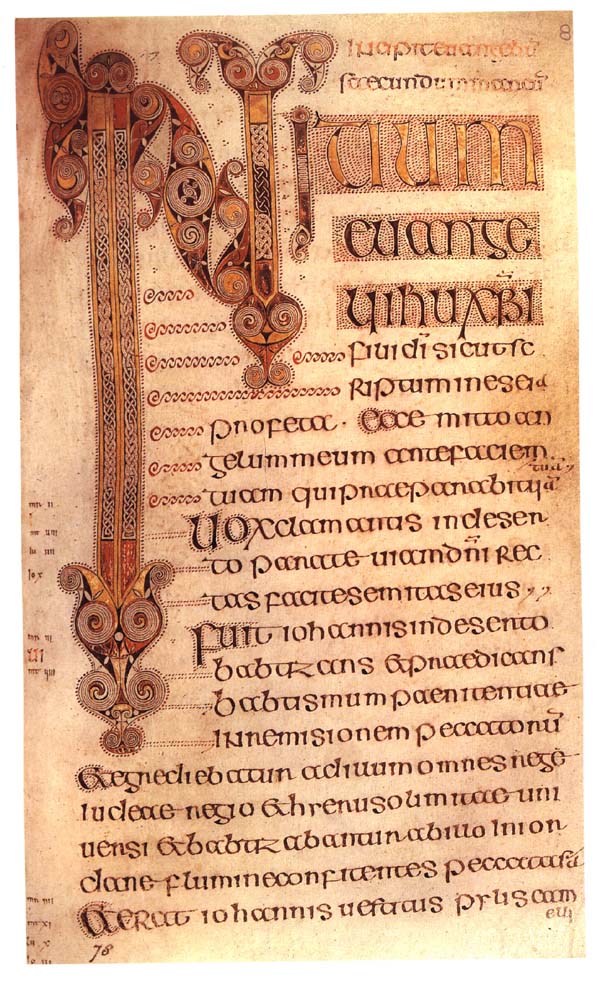 8
secundum marcū
INITIUM
euange
lii ihu xp̄i
filii dī sicut sc
riptum in eseia
profeta · Ecce mitto an
gelum meum ante faciem
tuā
tuam qui praeparabit uiā
Uox clamantis in deser
to parate uiam dn̄i rec
tas facite semitas eius
Fuit iohannis in deserto
babtizans & praedicans
babtismum paenitentiae
in remisionem peccatorū
& egrediebatur ad illum omnes
iudeae regio & hierusolimitae uni
uersi & babtizabantur ab illo in ior
dane flumine confitentes peccata sua
& erat iohannis uestitus pylis cam
elli
78